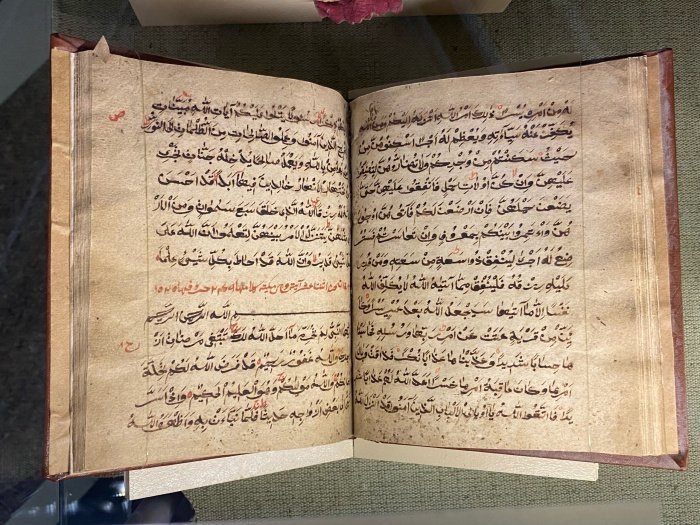 له من امره يسرا ذلك امر الله انزله اليكم ومن يتق الله
يكفر عنه سيئاته ويعظم له اجرا اسكنوهن من
حيث سكنتم من وجدكم ولا تضاروهن لتضيقوا
عليهن وان كن اولات حمل فانفقوا عليهن حتى
يضعن حملهن فان ارضعن لكم فآتوهن اجور
هن وأتمروا بينكم بمعروف وان تعاسرتم فستر
ضع له اخرى لينفق ذو سعة من سعته ومن قدر
عليه رزقه فلينفق مما آتيه الله لا يكلف الله
نفسا الا ما آتيها سيجعل الله بعد عسر يسرا وكا
ين من قرية عتت عن امر ربها ورسله فحاسبنا
ها حسابا شديدا وعذبناها عذابا نكرا فذاقت وبال
امرها وكان عاقبة امرها خسرا اعد الله لهم عذابا شد
يدا فاتقوا الله يا اولى الالباب الذين آمنوا قد انزل الله
يتلوا عليكم آيات الله مبينات
الذين آمنوا وعملوا الصالحات من الظلمات الى النور
يؤمن بالله ويعمل صالحا يدخله جنات تجرى
من تحتها الانهار خالدين فيها ابدا قد احسن
الله له رزقا الله الذى خلق سبع سموات ومن الار
ض مثلهن يتنزل الامر بينهن لتعلموا ان الله على
كل شيئ قدير وان الله قد احاط بكل شيئ علما
بسم الله الرحمن الرحيم
يا ايها النبى لم تحرم ما احل الله لك تبتغى مرضات از
واجك والله غفور رحيم قد فرض الله لكم تحلة
ايمانكم والله موليكم وهو العليم الحكيم واذ اسر
النبى الى بعض ازواجه حديثا فلما نبأت به واظهره الله